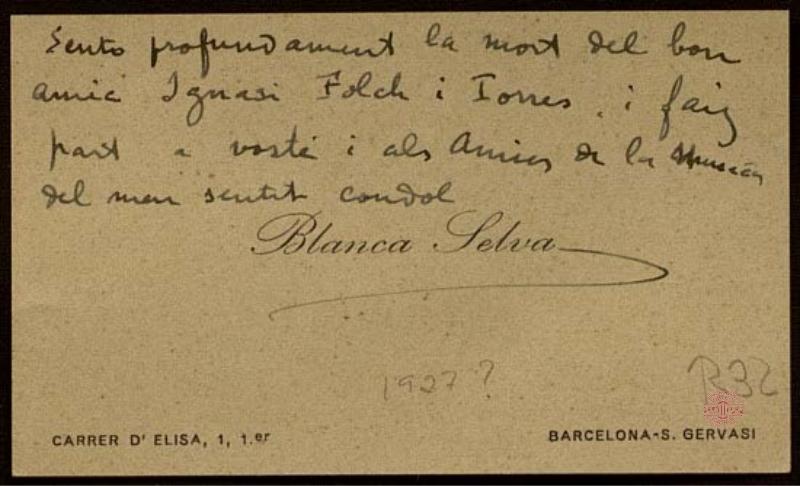 Sento profundament la mort del bon
amic Ignasi Folch i Torres, i faig
part a vostè i als Amics de la
del meu sentit condol
Blanca Selva
1927?
R32
CARRER D' ELISA, 1, 1.er
BARCELONA-S. GERVASI